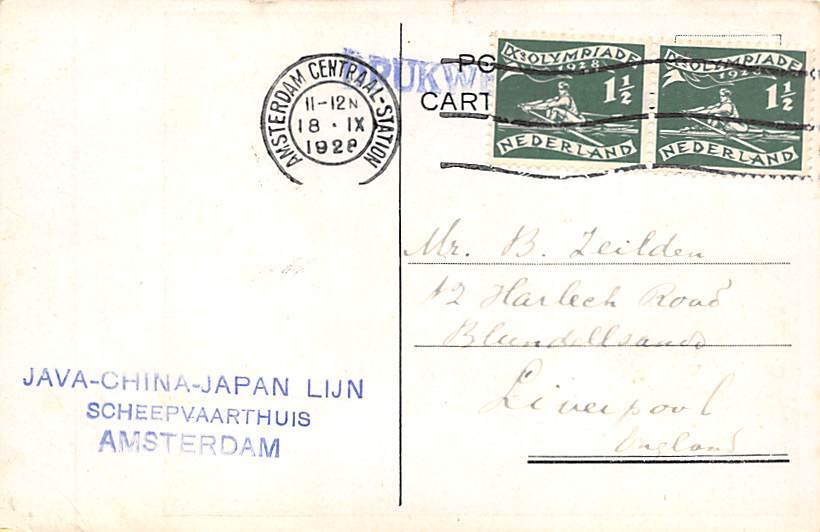 AMSTERDAM CENTRAAL-STATION
11-12 N
18 · IX
1928
DRUKWE
PO
CART
IXe OLYMPIADE
1928
1½
NEDERLAND
IXe OLYMPIADE
1928
1½
NEDERLAND
Mr. B. Zeilden
12 Harlech Road
Blundellsands
Liverpool
England
JAVA-CHINA-JAPAN LIJN
SCHEEPVAARTHUIS
AMSTERDAM